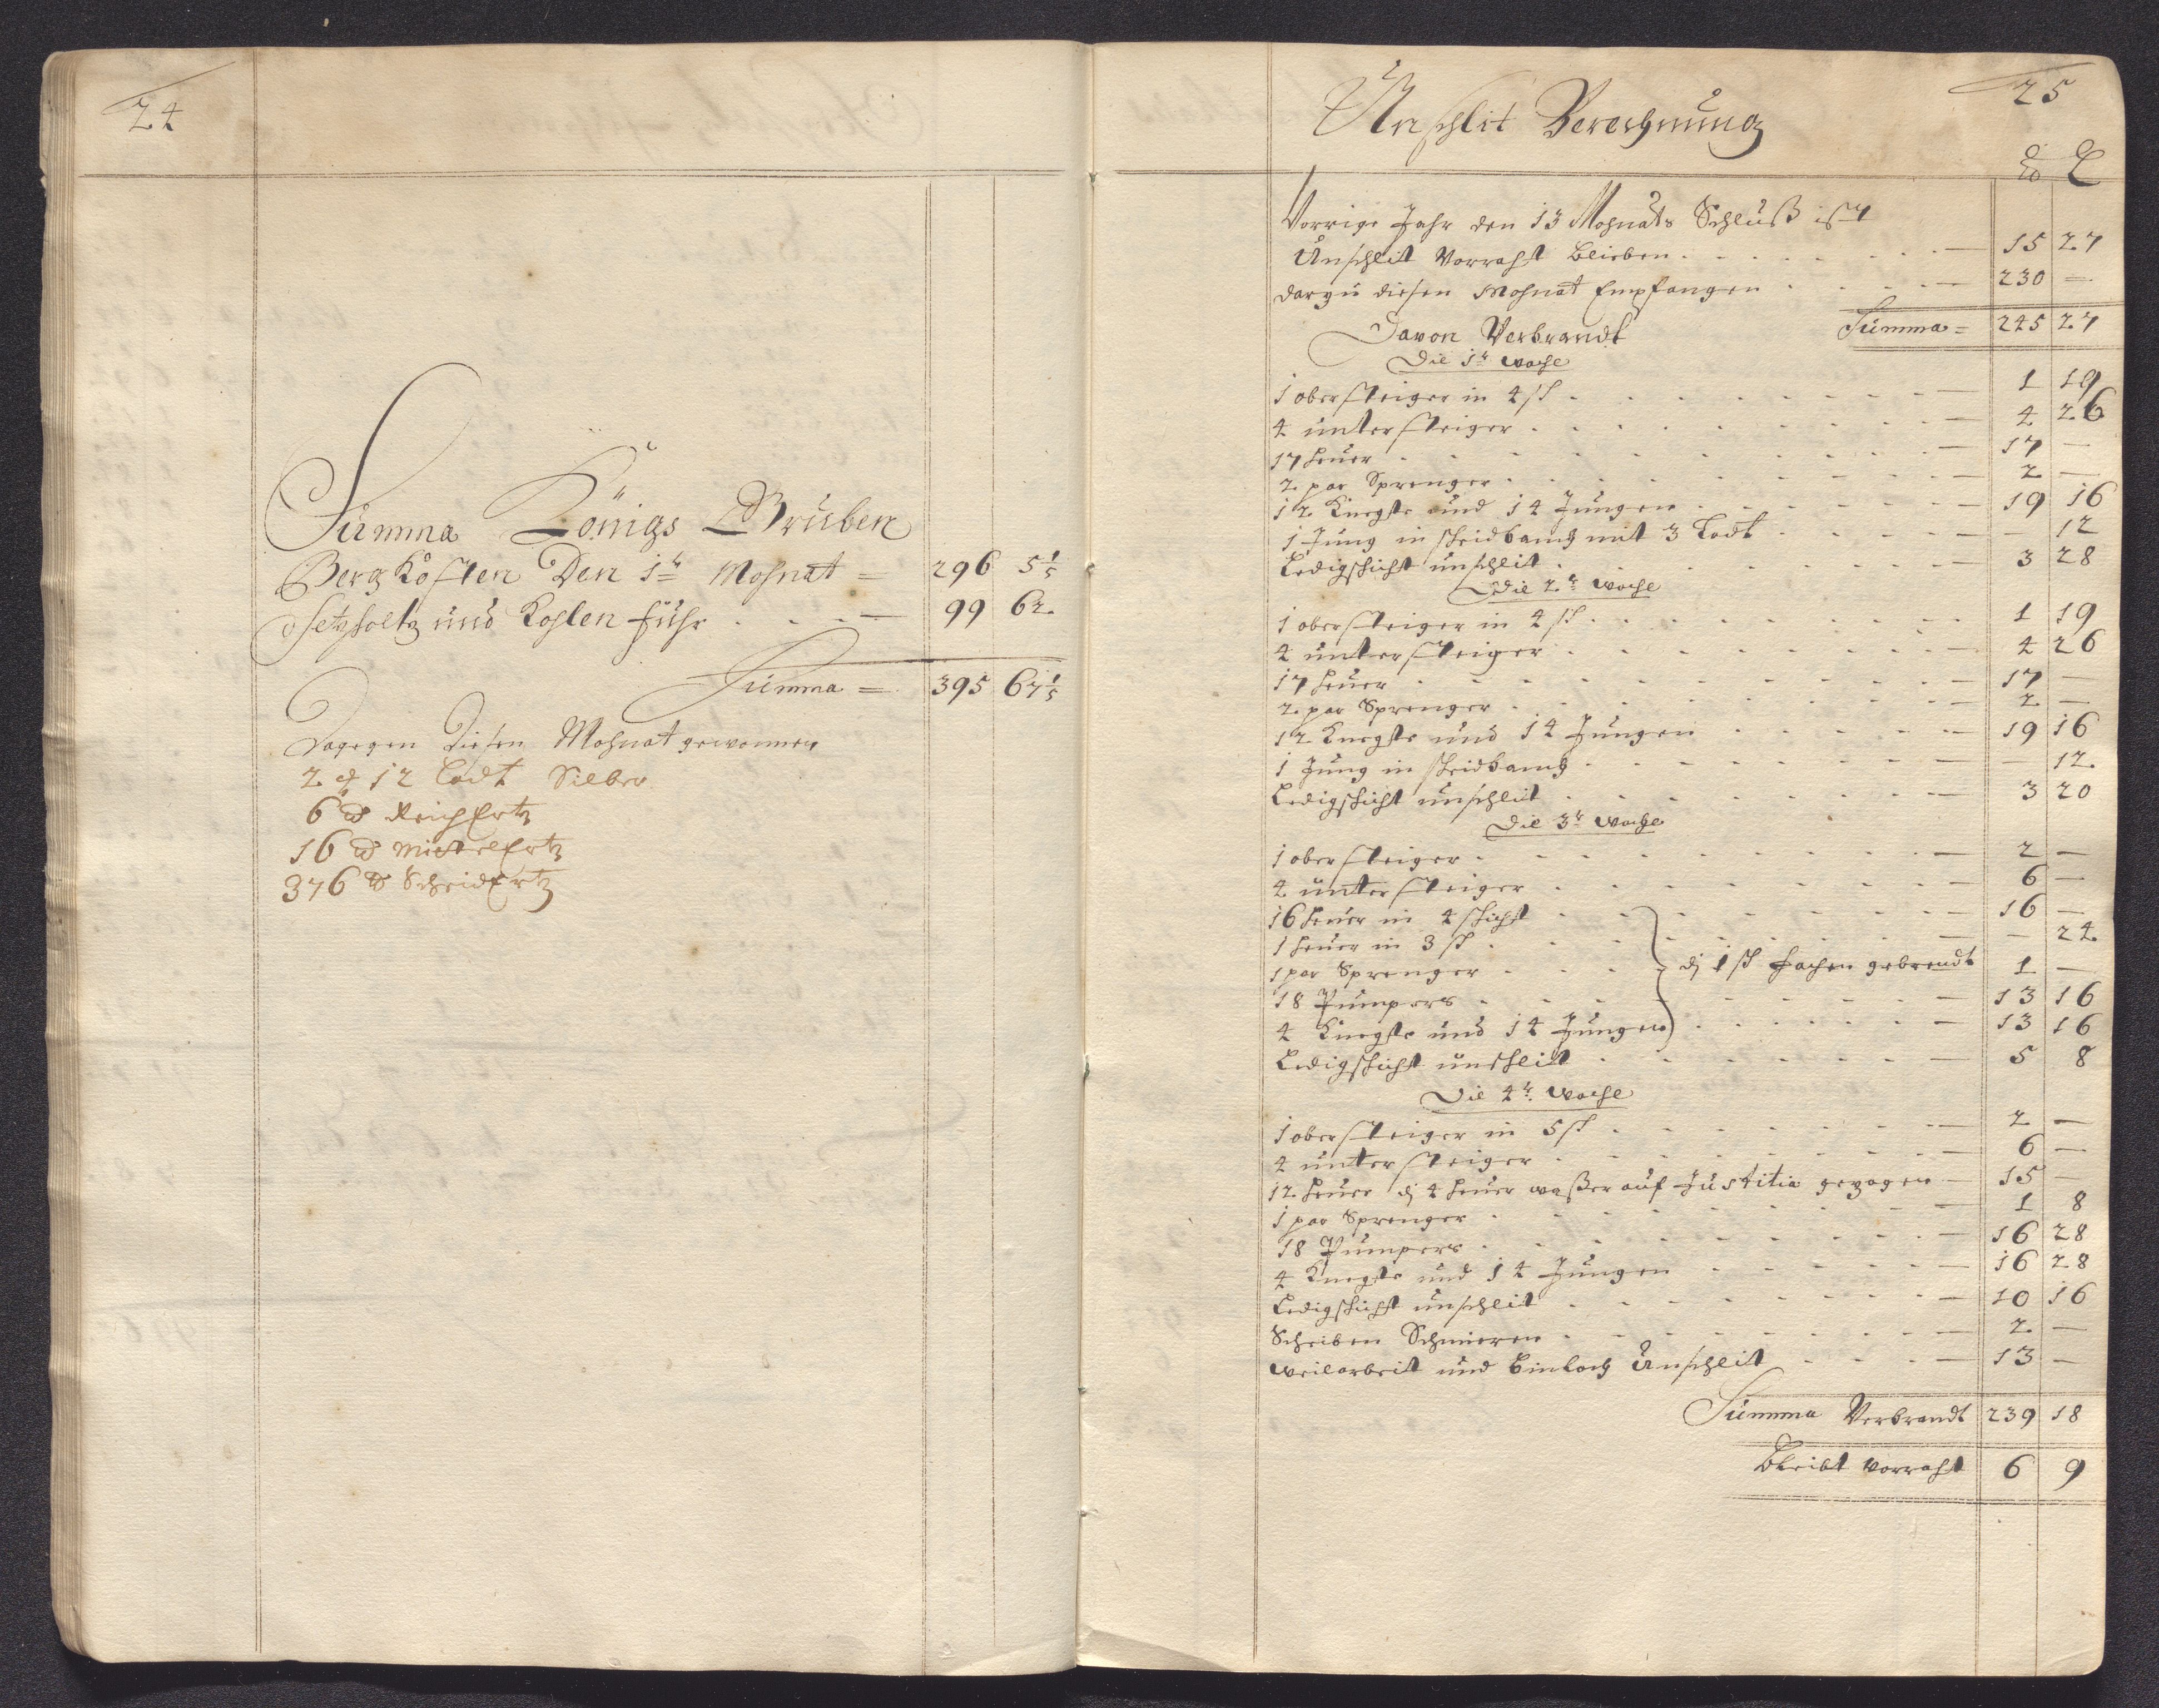 24
Summa Königs Gruben
Berg Kosten Den 1te Mohnat = 296 5 1/5
Setzholtz und Kohlen fuhr - - - 99 62
Summa = 395 67 1/5
Dagegen Diesen Mohnat gewonnen
2 12 Lodt Silber
6 Reich Ertz
16 Mittel Ertz
376 Scheid Ertz
25
Unschlit Berechnung
lb L
Vorrige Jahr den 13 Mohnats Schluß ist
Unschlit Vorraht blieben - - - 15 27
darzu diesen Mohnat Empfangen - - - 230 —
Summa = 245 27
Davon Verbrandt
Die 1te woche
1 obersteiger in 4 sch - - - 1 19
4 untersteiger - - - 4 26
17 heuer - - - 17 —
2 par Sprenger - - - 2 —
12 Knegte und 14 Jungen - - - 19 16
1 Jung in scheidbanck mit 3 Lodt - - - — 12
Ledigschicht unschlit - - - 3 28
Die 2te woche
1 obersteiger in 4 sch - - - 1 19
4 untersteiger - - - 4 26
17 heuer - - - 17 —
2 par Sprenger - - - 2 —
12 Knegte und 14 Jungen - - - 19 16
1 Jung in scheidbanck - - - — 12
Ledigschicht unschlit - - - 3 20
Die 3te woche
1 obersteiger - - - 2 —
4 untersteiger - - - 6 —
16 heuer in 4 schicht - - - 16 —
1 heuer in 3 sch - - - — 24
1 par Sprenger - - - dj 1 sch gebrendt 1 —
18 Pumpers - - - 13 16
4 Knegte und 14 Jungen - - - 13 16
Ledigschicht unschlit - - - 5 8
Die 4te woche
1 obersteiger in 5 sch - - - 2 —
4 untersteiger - - - 6 —
12 heuer dj 4 heuer waßer auf Justitia gezogen - 15 —
1 par Sprenger - - - 1 8
18 Pumpers - - - 16 28
4 Knegte und 14 Jungen - - - 16 28
Ledigschicht unschlit - - - 10 16
Scheiben Schmieren - - - 2 —
weilarbeit und Unschlit - - - 13 —
Summa Verbrandt 239 18
Bleibt Vorraht 6 9